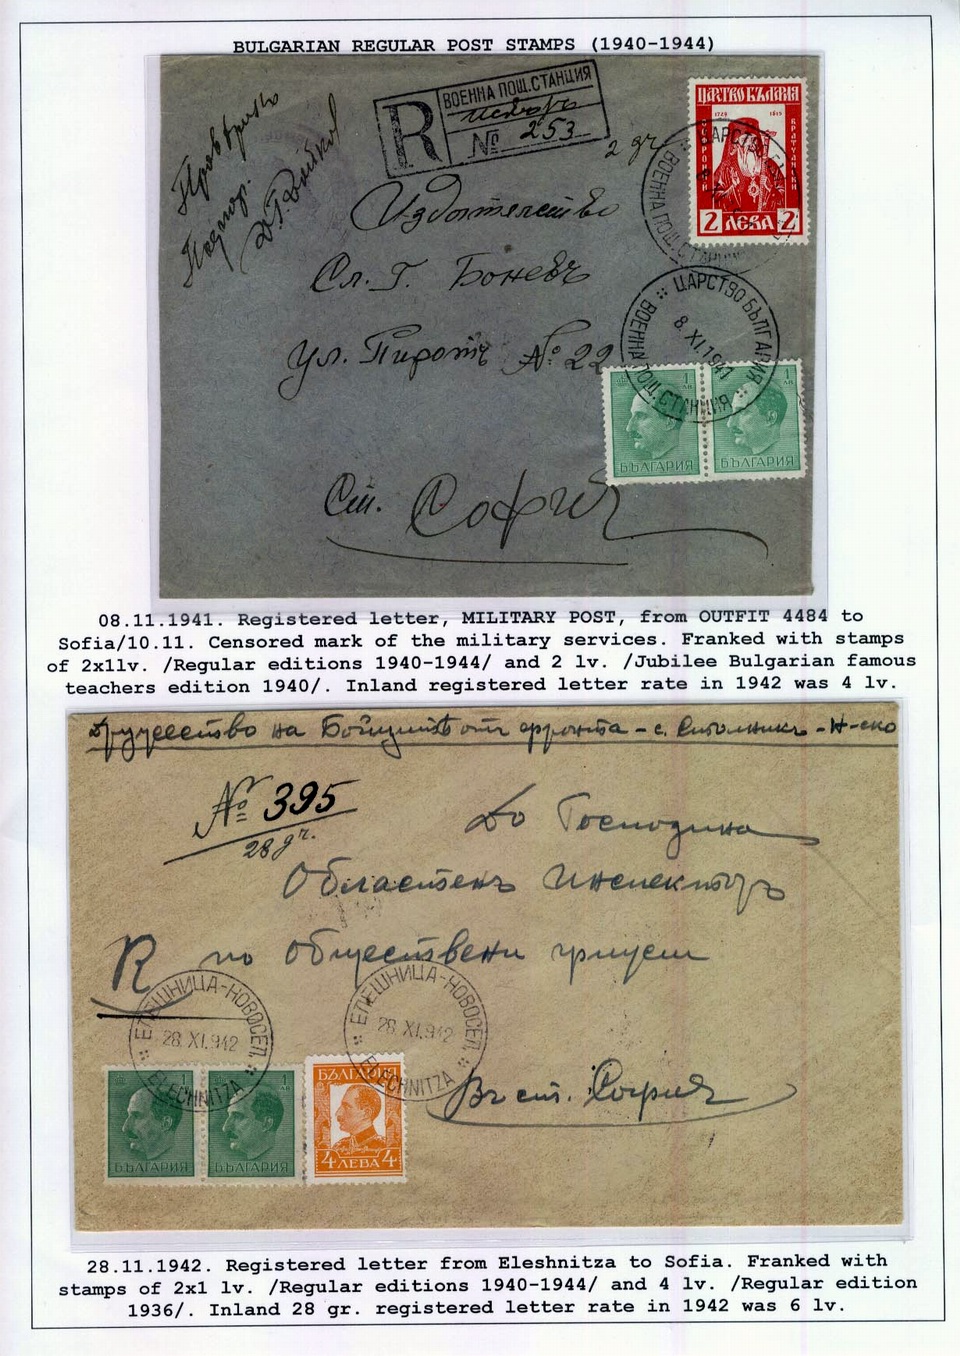 BULGARIAN REGULAR POST STAMPS (1940-1944)
R
ВОЕННА ПОЩ.СТАНЦИЯ
№ 253
2 gr
ЦАРСТВО БЪЛГАРИЯ
2 ЛЕВА 2
Издателство
Сл. Г. Боневъ
Ул. Пиротъ № 22
Ст. София
ЦАРСТВО БЪЛГАРИЯ
ВОЕННА ПОЩ.СТАНЦИЯ
ЦАРСТВО БЪЛГАРИЯ
8.XI.1941
ВОЕННА ПОЩ.СТАНЦИЯ
1 ЛВ
БЪЛГАРИЯ
1 ЛВ
БЪЛГАРИЯ
08.11.1941. Registered letter, MILITARY POST, from OUTFIT 4484 to
Sofia/10.11. Censored mark of the military services. Franked with stamps
of 2x1lv. /Regular editions 1940-1944/ and 2 lv. /Jubilee Bulgarian famous
teachers edition 1940/. Inland registered letter rate in 1942 was 4 lv.
Дружество на Бойцитѣ отъ фронта - с. Столникъ - Н-ско
№ 395
28 gr.
До Господина
Областенъ Инспекторъ
R по обществени грижи
Въ ст. София
ЕЛЕШНИЦА-НОВОСЕЛ.
28.XI.942
ELECHNITZA
ЕЛЕШНИЦА-НОВОСЕЛ.
28.XI.942
ELECHNITZA
1
БЪЛГАРИЯ
1
БЪЛГАРИЯ
БЪЛГАРИЯ
4 ЛЕВА 4
28.11.1942. Registered letter from Eleshnitza to Sofia. Franked with
stamps of 2x1 lv. /Regular editions 1940-1944/ and 4 lv. /Regular edition
1936/. Inland 28 gr. registered letter rate in 1942 was 6 lv.